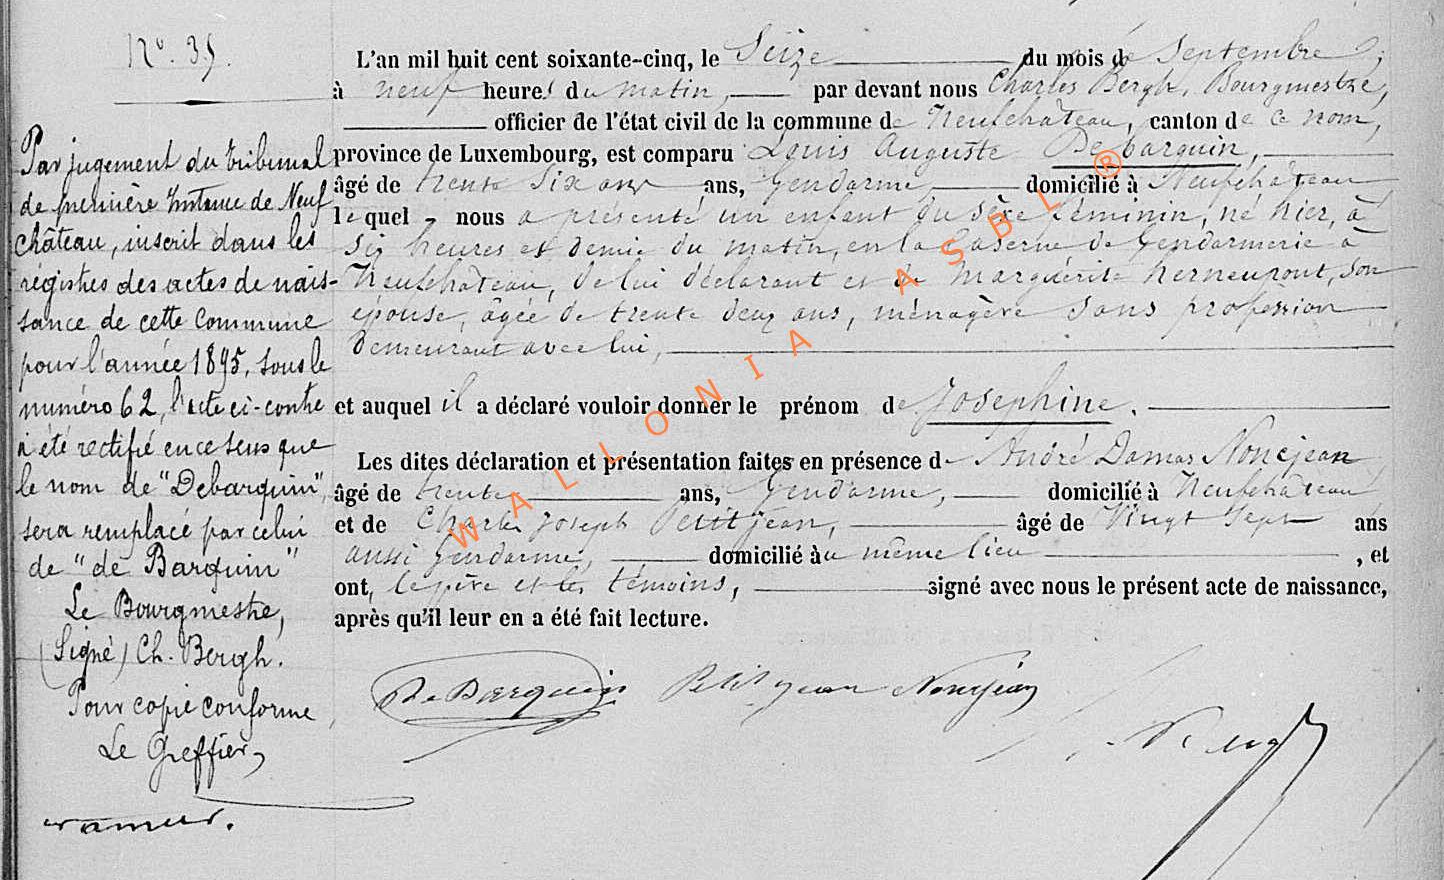 N° 35.
Par jugement du tribunal
de première Instance de Neuf
château, inscrit dans les
régistres des actes de nais-
sance de cette Commune
pour l'année 1895, sous le
numéro 62, l'acte ci-contre
a été rectifié en ce sens que
le nom de "Debarquin",
sera remplacé par celui
de "de Barquin"
Le Bourgmestre,
(Signé) Ch. Bergh.
Pour copie conforme
Le Greffier,
L'an mil huit cent soixante-cinq, le Seize du mois de Septembre,
à neuf heures du matin, par devant nous Charles Bergh, Bourgmestre,
officier de l'état civil de la commune de Neufchâteau, canton de ce nom,
province de Luxembourg, est comparu Louis Auguste De barquin,
âgé de trente Six ans ans, Gendarme, domicilié à Neufchâteau
lequel nous a présenté un enfant du sèxe féminin, né hier, à
six heures et demie du matin, en la Caserne de Gendarmerie à
Neufchâteau, de lui déclarant et de Marguérite herneupont, son
épouse, âgée de trente deux ans, ménagère sans profession
demeurant avec lui,
et auquel il a déclaré vouloir donner le prénom de Joséphine.
Les dites déclaration et présentation faites en présence de André Damas Noncjean
âgé de trente ans, Gendarme, domicilié à Neufchâteau
et de Charles Joseph Petitjean, âgé de Vingt Sept ans
aussi Gendarme, domicilié au même lieu , et
ont, le père et les témoins, signé avec nous le présent acte de naissance,
après qu'il leur en a été fait lecture.
De Barquin Petitjean Noncjean
WALLONIA ASBL ®